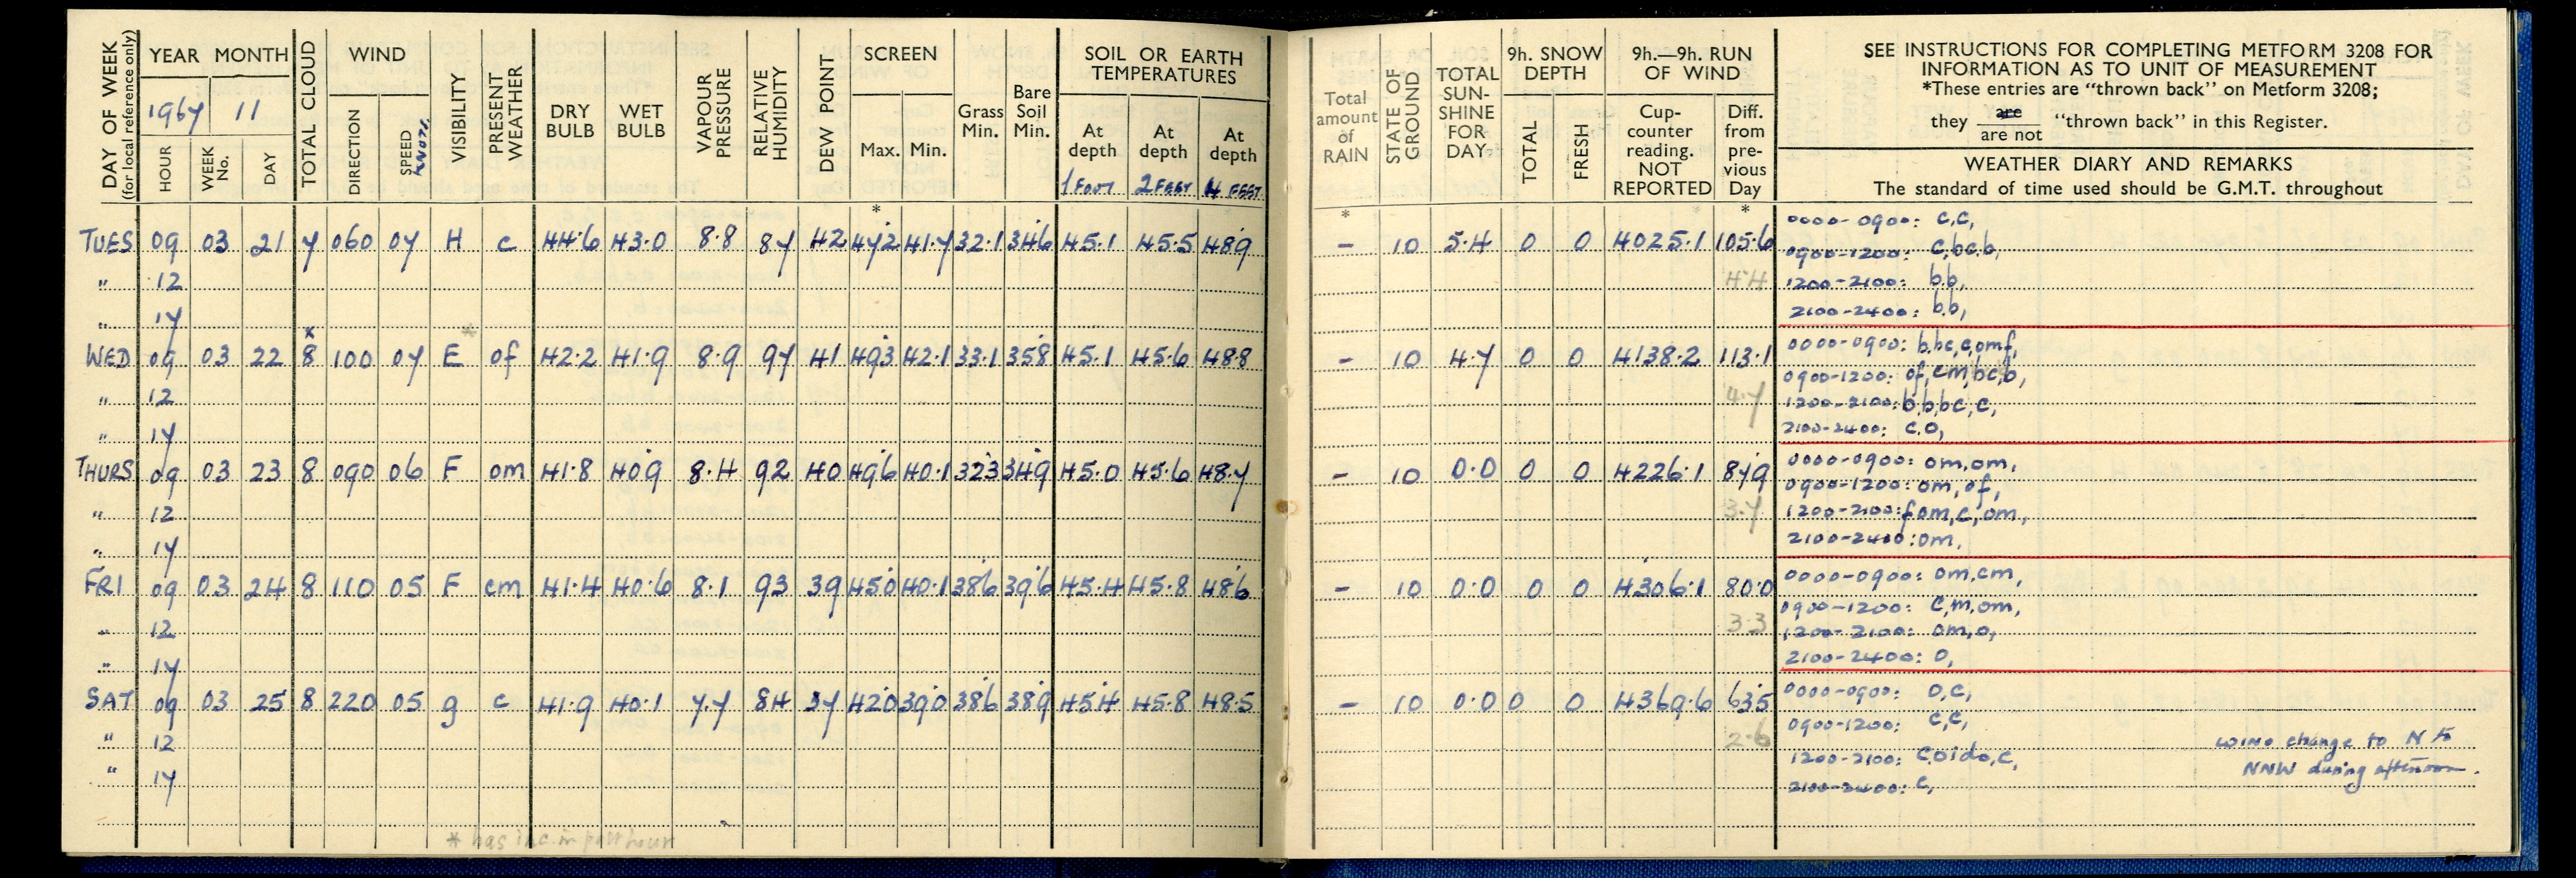 DAY OF WEEK
(for local reference only)
YEAR MONTH
1967 11
HOUR
WEEK No.
DAY
TOTAL CLOUD
WIND
DIRECTION
SPEED KNOTS
VISIBILITY
PRESENT WEATHER
DRY BULB
WET BULB
VAPOUR PRESSURE
RELATIVE HUMIDITY
DEW POINT
SCREEN
Max. Min.
Grass Min.
Bare Soil Min.
SOIL OR EARTH TEMPERATURES
At depth 1 FOOT
At depth 2 FEET
At depth 4 FEET
Total amount of RAIN
STATE OF GROUND
TOTAL SUN-SHINE FOR DAY
9h. SNOW DEPTH
TOTAL
FRESH
9h.—9h. RUN OF WIND
Cup-counter reading. NOT REPORTED
Diff. from pre-vious Day
SEE INSTRUCTIONS FOR COMPLETING METFORM 3208 FOR
INFORMATION AS TO UNIT OF MEASUREMENT
*These entries are "thrown back" on Metform 3208;
they are / are not "thrown back" in this Register.
WEATHER DIARY AND REMARKS
The standard of time used should be G.M.T. throughout
* * *
TUES 09 03 21 7 060 07 H c 44.6 43.0 8.8 87 42 47.2 41.7 32.1 34.6 45.1 45.5 48.9 – 10 5.4 0 0 4025.1 105.6
0000-0900: c,c,
0900-1200: c,bc,b,
" 12 4.4
1200-2100: b,b,
" 17
2100-2400: b,b,
x *
WED 09 03 22 8 100 07 E of 42.2 41.9 8.9 97 41 49.3 42.1 33.1 35.8 45.1 45.6 48.8 – 10 4.7 0 0 4138.2 113.1
0000-0900: b,bc,c,omf,
0900-1200: of,cm,bc,b,
" 12 4.7
1200-2100: b,b,bc,c,
" 17
2100-2400: c,o,
THURS 09 03 23 8 090 06 F om 41.8 40.9 8.4 92 40 49.6 40.1 32.3 34.9 45.0 45.6 48.7 – 10 0.0 0 0 4226.1 87.9
0000-0900: om,om,
0900-1200: om,of,
" 12 3.7
1200-2100: fom,c,om,
" 17
2100-2400: om,
FRI 09 03 24 8 110 05 F cm 41.4 40.6 8.1 93 39 45.0 40.1 38.6 39.6 45.4 45.8 48.6 – 10 0.0 0 0 4306.1 80.0
0000-0900: om,cm,
0900-1200: c,m,om,
" 12 3.3
1200-2100: om,o,
" 17
2100-2400: o,
SAT 09 03 25 8 220 05 g c 41.9 40.1 7.7 84 37 42.0 39.0 38.6 38.9 45.4 45.8 48.5 – 10 0.0 0 0 4369.6 63.5
0000-0900: o,c,
0900-1200: c,c,
" 12 2.6
wind change to N
1200-2100: c,oido,c,
" 17
NNW during afternoon.
2100-2400: c,
* has inc. in past hour